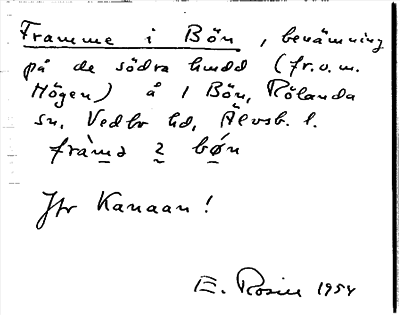 Framme i Bön, benämning
på de södra hmdd (fr.o.m.
Högen) å 1 Bön, Rölanda
sn, Vedbo hd, Älvsb. l.
fràma 2 bøn
Jfr Kanaan!
E. Rosin 1954